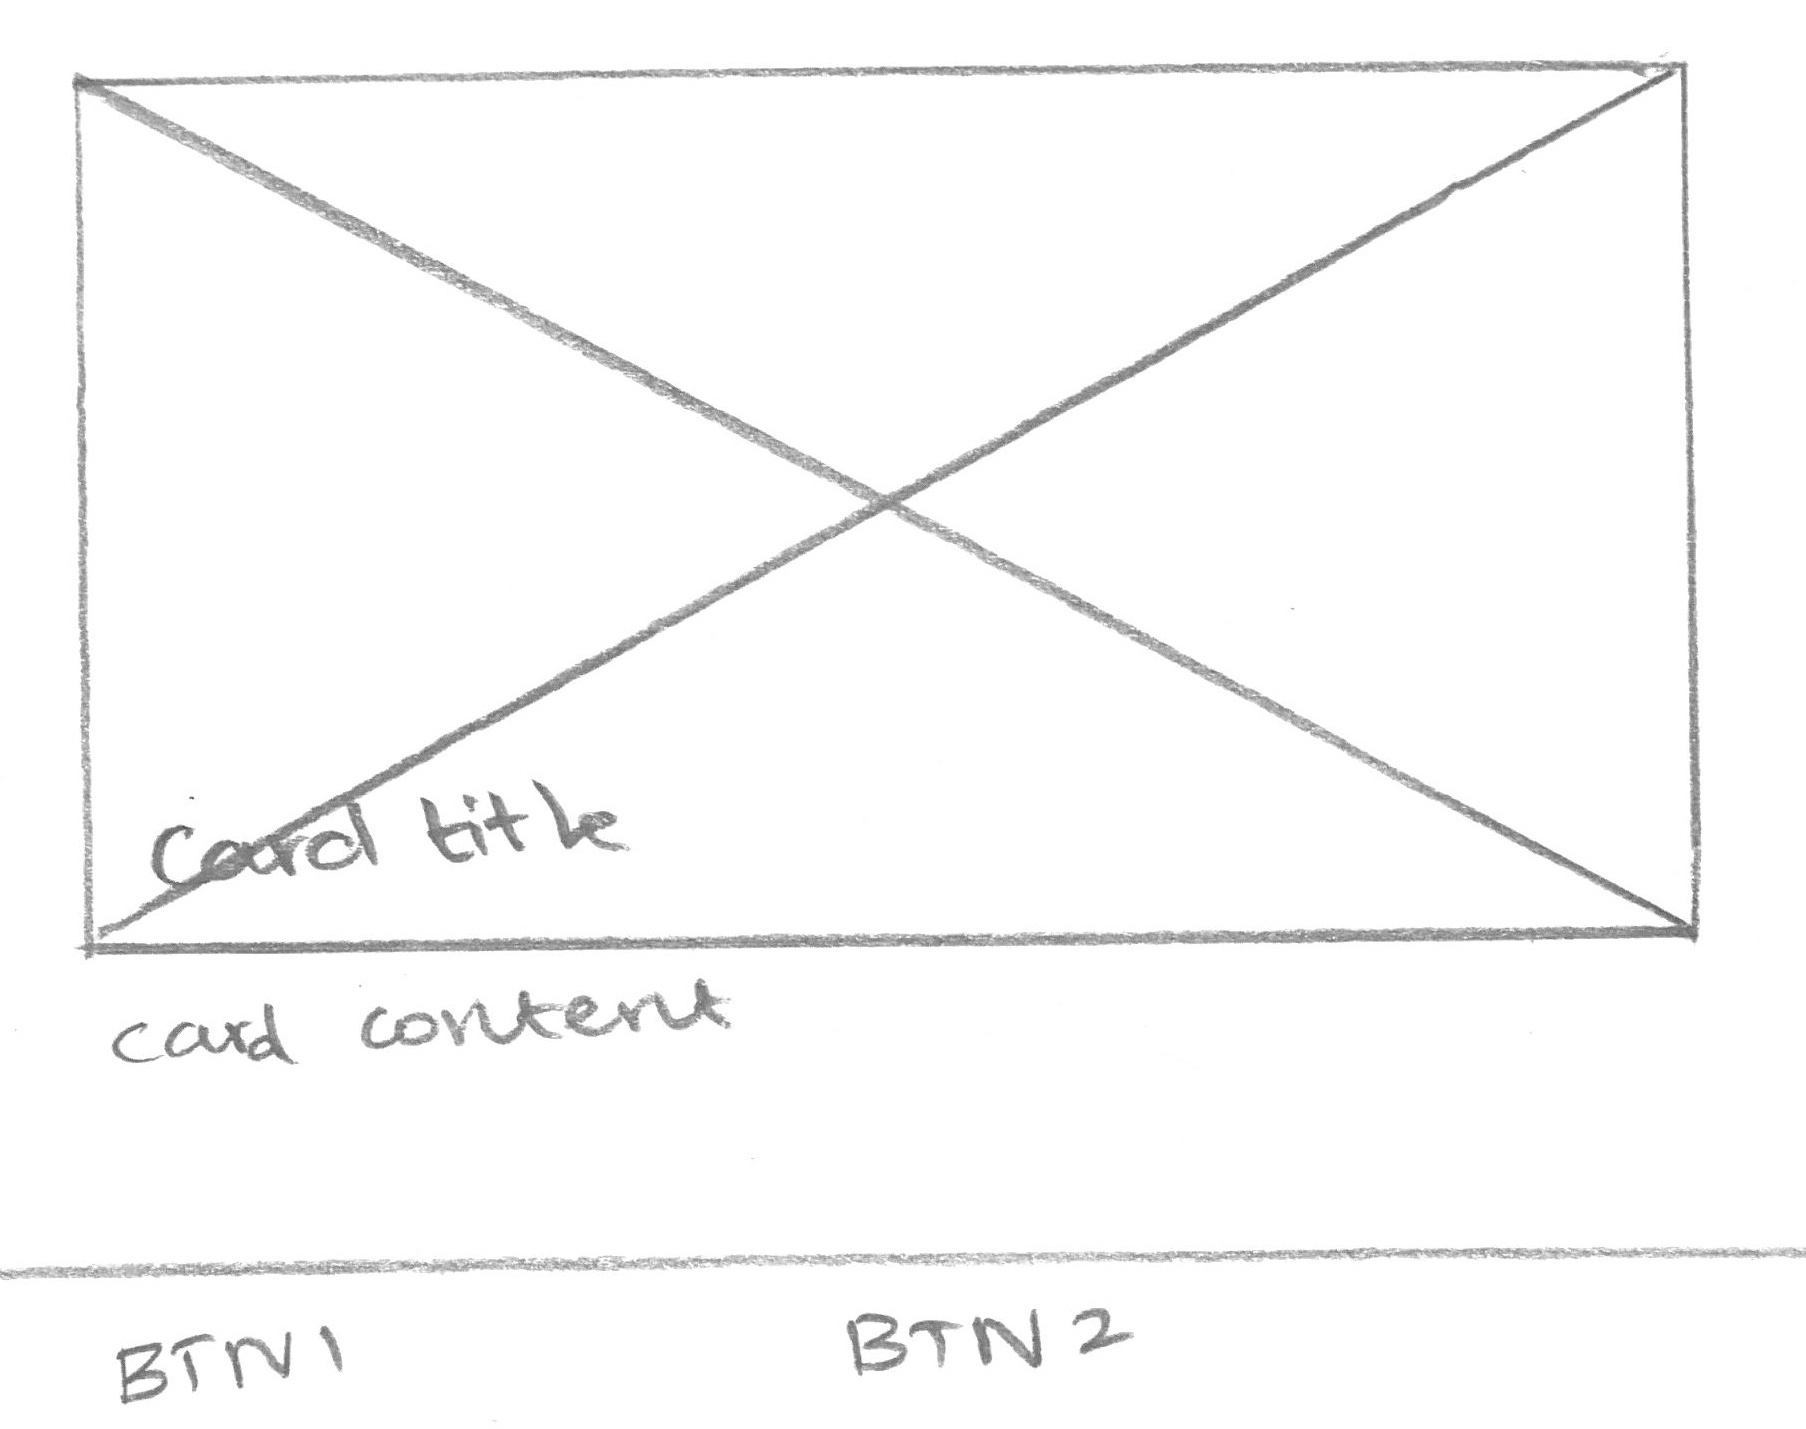 Card title
card content
BTN 1 BTN 2